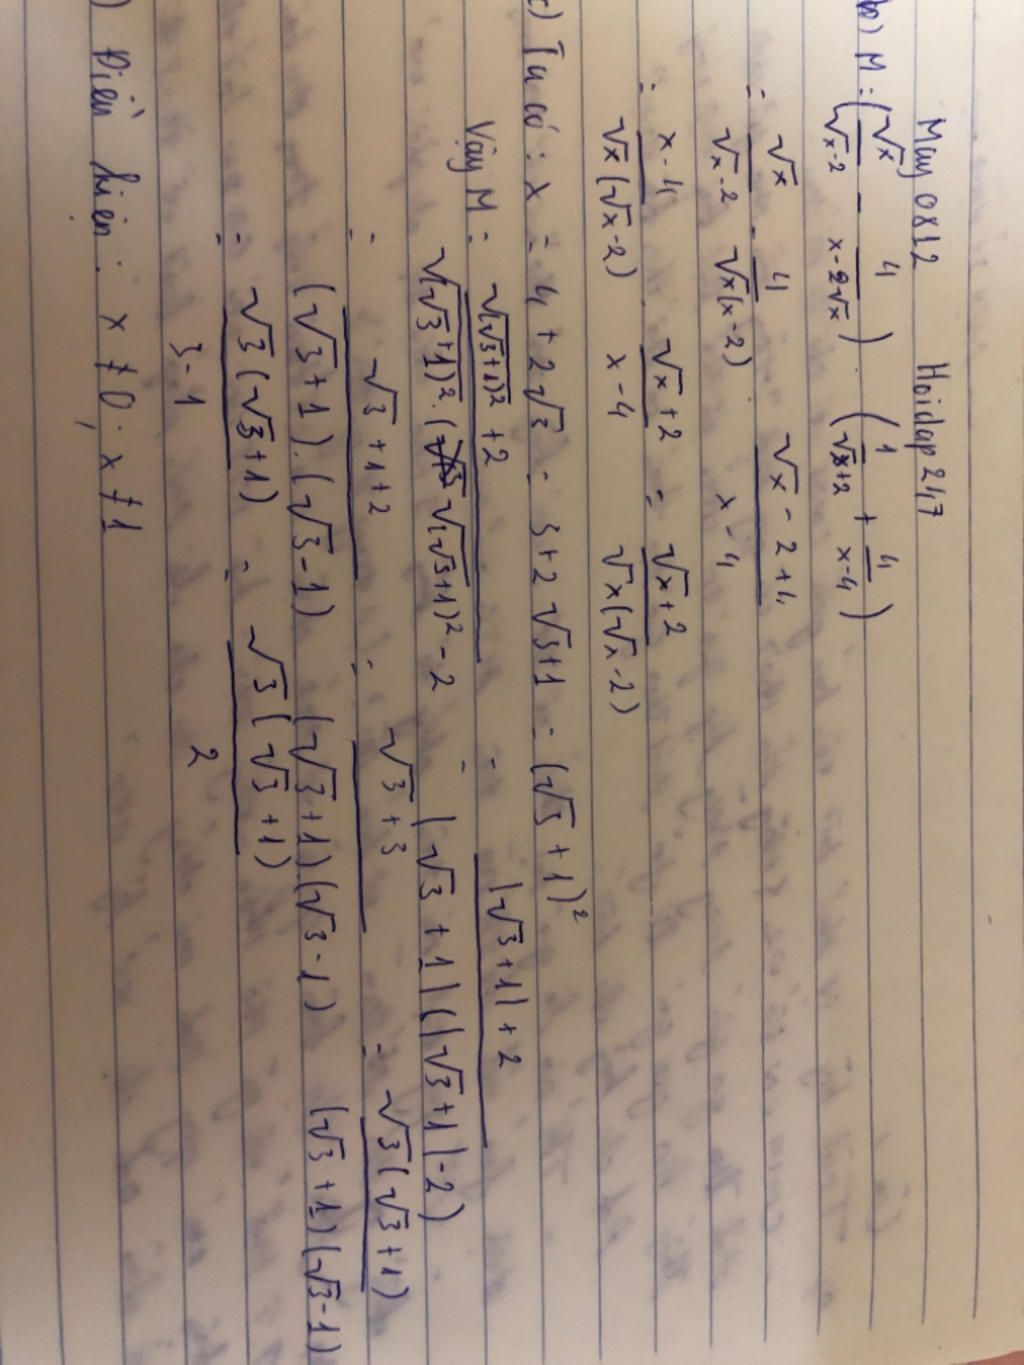 May 0812 Hoidap247
b) M = (√x/(√x-2) - 4/(x-2√x)) . (1/(√x+2) + 4/(x-4))
= √x/(√x-2) - 4/(√x(x-2)) . (√x-2+4)/(x-4)
= (x-4)/(√x(√x-2)) . (√x+2)/(x-4) = (√x+2)/(√x(√x-2))
c) Ta có: x = 4+2√3 = 3+2√3+1 = (√3+1)²
Vậy M = (√(√3+1)²+2)/(√(√3+1)².(√(√3+1)²-2)) = (|√3+1|+2)/(|√3+1|(|√3+1|-2))
= (√3+1+2)/((√3+1).(√3-1)) = (√3+3)/((√3+1)(√3-1)) = √3(√3+1)/((√3+1)(√3-1))
= √3(√3+1)/(3-1) = √3(√3+1)/2
) Điều kiện: x ≠ 0, x ≠ 1